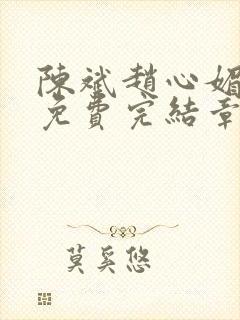 陳斌趙心媚
免費完結章
莫奚悠